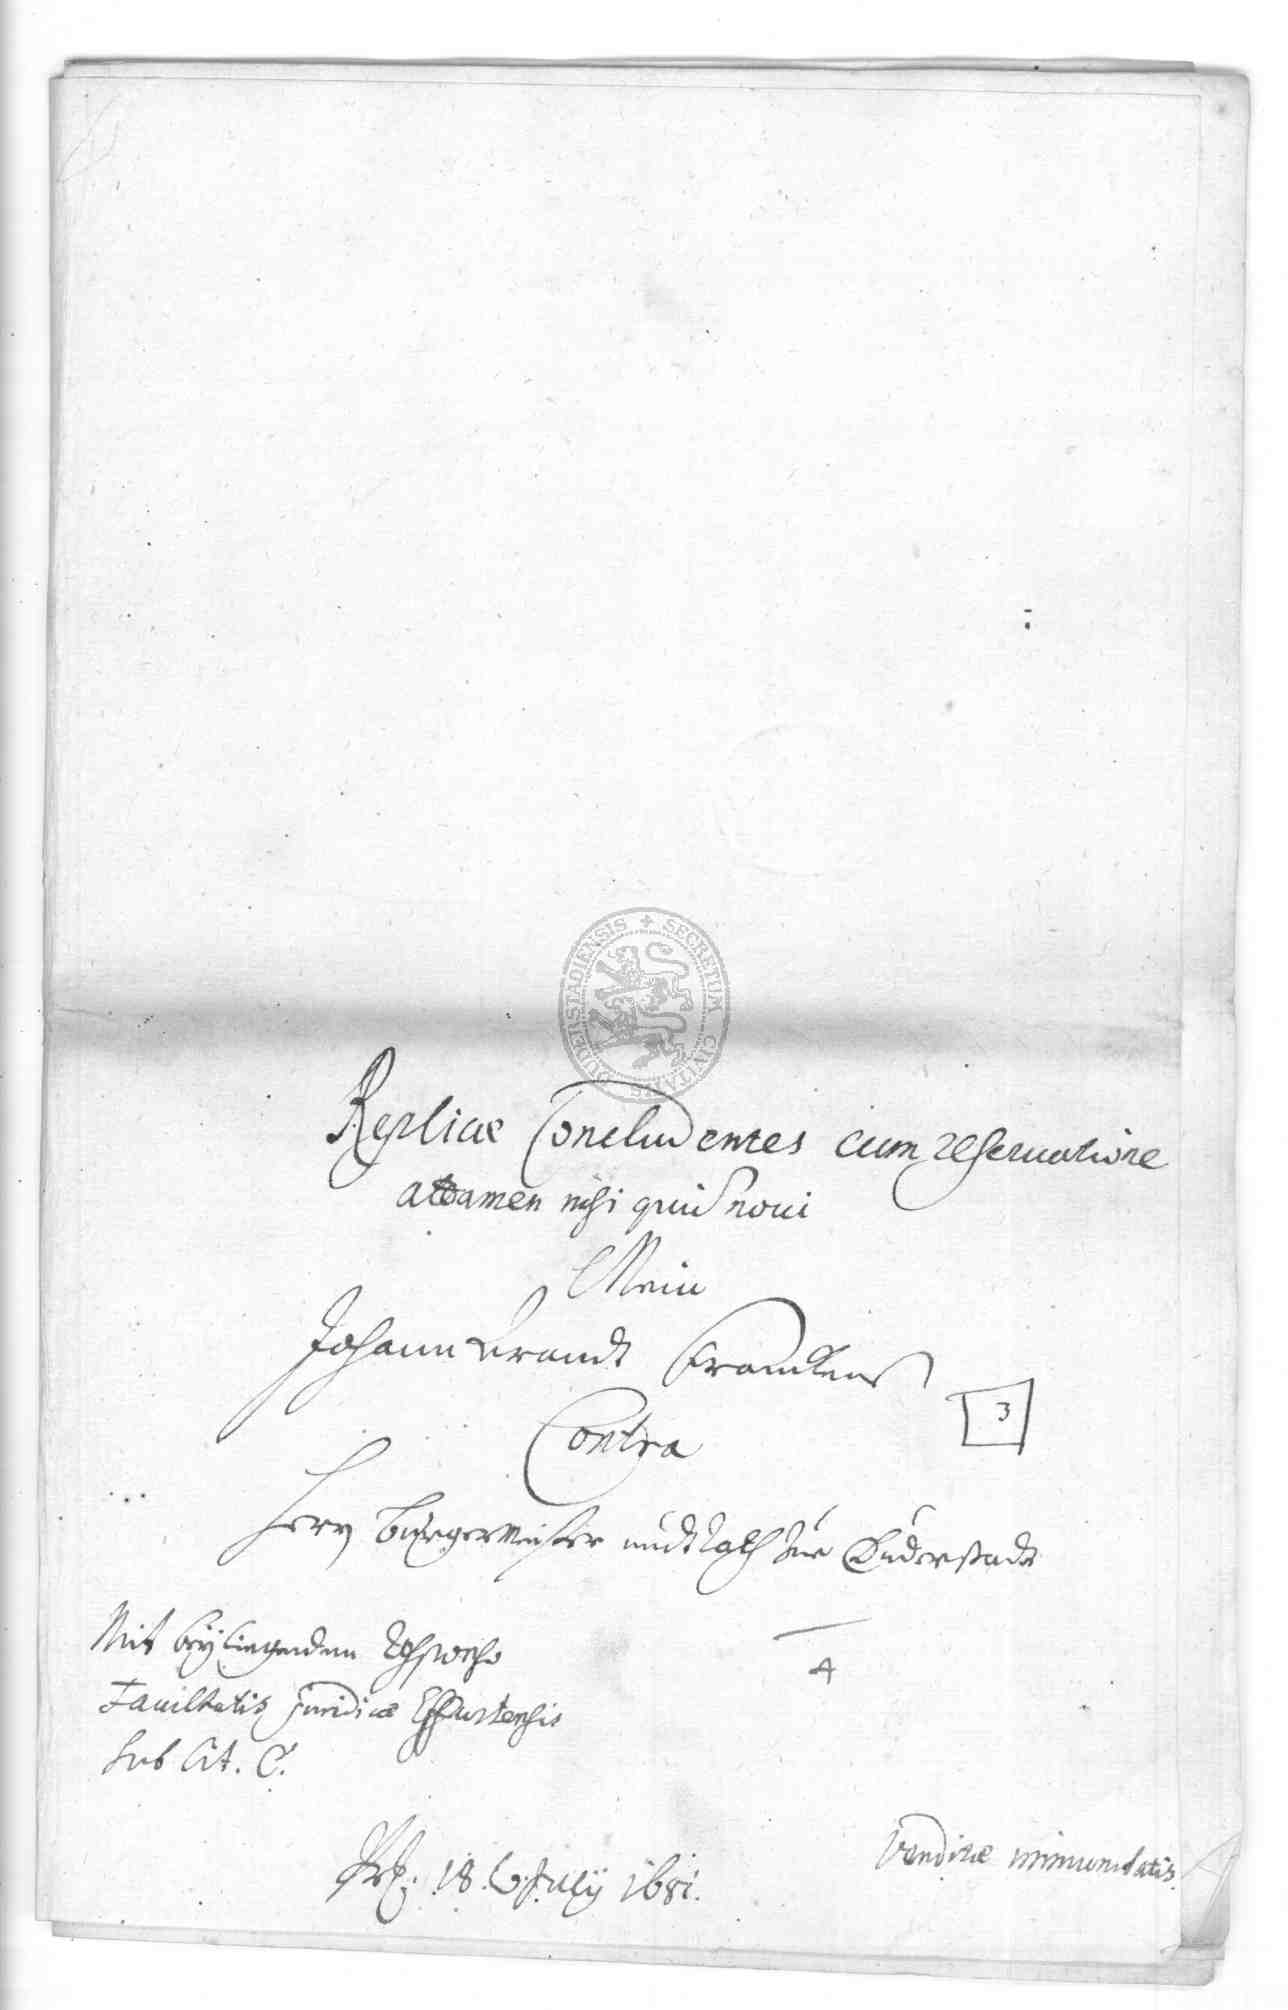 SECRETUM CIVITATIS DUDERSTADIENSIS
Replicae Concludentes cum reservatione
attamen nisi quid novi
Mein
Johann Brandt Franckens
Contra
3
Herrn Bürgermeister undt Rath zue Duderstadt
Mit beyliegendem
4
Facultatis Juridicae Erffurtensis
sub Lit. C.
18. July 1681.
venditae immunitatis.